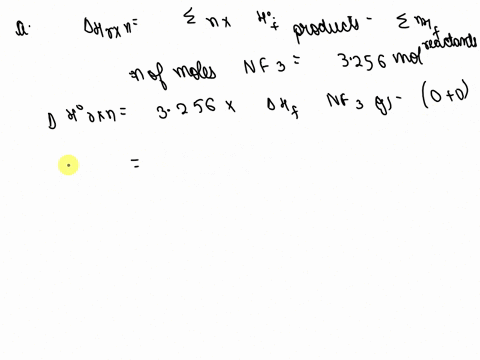 a. ΔHrxn = Σ n x H°f products - Σ nHf reactants
n of moles NF3 = 3.256 mol
ΔH°rxn = 3.256 x ΔHf NF3 g) - (0+0)
=